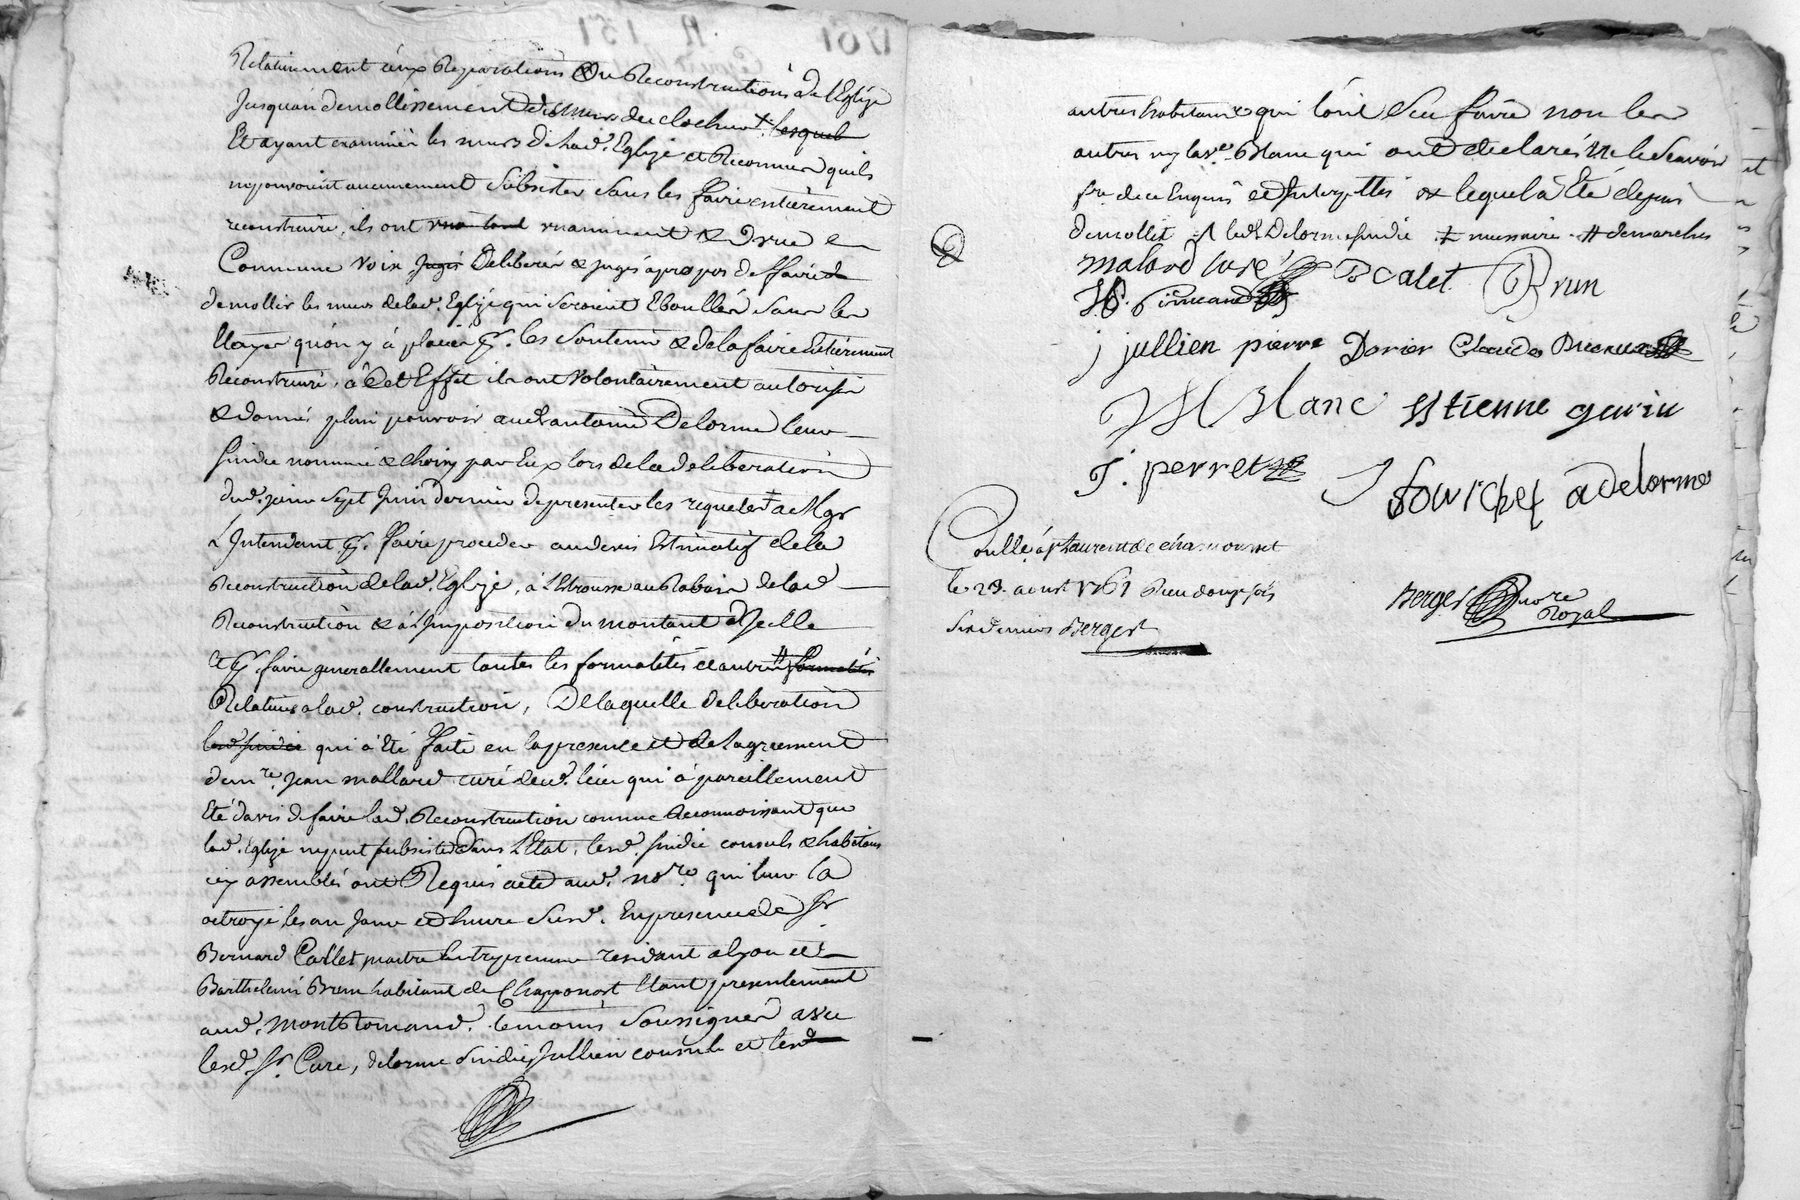 Relativement aux Reparations Ou Reconstructions de l'Eglize
Jusqu'au demollissement des murs du clocher ‡ lesquels
Et ayant examinéé les murs de lad. Eglize et Reconnu quils
ne pouvoient aucunement Subsister Sans les faire entièrement
reconstruire, ils ont vnaniment & D'vne
Commune voix Jugés Deliberér & jugés àpropos de ffaire
demollir les murs delad. Eglize qui Seroient Eboullés Sans les
Etayes qu'on y à placéér pr. les Soutenir & de la faire Entiérement
Reconstruire, à Cet Effet ils ont volontairement autorisé
& donné plain pouvoir aud. antoine Delorme leur
Sindic nommé & choisy par Eux lors de la deliberation
dud. jour Sept Juin dernier de presenter les requetes ‡ a Mgr
L'Intendant pr. faire proceder au devis Estimatif de la
Reconstruction de lad. Eglize, à L'Etrousse au Rabais de lad.
Reconstruction & à L'Imposition du montant d'Icelle
et pr. faire generallement toutes les formalités et autres # formalités
Relatives a lad. construction, De laquelle deliberation
led. sindic qui à Eté faite en la presence et de l'agreement
de mre. Jean mallard curé dud. lieu qui à pareillement
Eté d'avis de faire lad. Reconstruction comme Reconnoissant que
lad. Eglize ne peut subsister dans L'Etat, lesd. sindic consuls & habitans
icy assemblés ont Requis acte aud. nore. qui leur la
octroyé les an Jour et heure Susd. En presence de Sr
Bernard Callet, maitre Entrepreneur residant a lyon et
Barthelemi Brun habitant de Chaponost Etant presentement
aud. Montromand. temoins Soussignés avec
lesd. Sr. Curé, delorme Sindic, Jullien consuls et lesd
autres habitans qui l'ont Sçu faire non les
autres ny lad. Blanc qui ont declarés ne le Scavoir
fre. de ce Enquis et Interpellés lequel à Eté depuis
demollit led. Delorme sindic ‡ necessaires # demarches
malard curé B Calet B Brun
j jullien pierre Dorier Claude
Blanc Estienne gerin
J. perret J fourchet adelorme
Conllé. à St Laurent de chamousset
le 23. aoust 1761 Reçu douze sols
Six deniers Berger
Berger nore
Royal